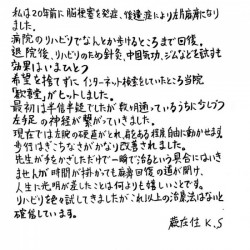 私は20年前に脳梗塞を発症、後遺症により左片麻痺になり
ました。
病院のリハビリでなんとか歩けるところまで回復。
退院後、リハビリのため針灸、中国気功、ジムなどを試すも
効果はいまひとつ
希望を捨てずに インターネット検索をしていたところ当院
がヒットしました。
最初は半信半疑でしたが数ヶ月通っているうちに少しづつ
左手足の神経が繋がっていきました。
現在では左腕の硬直がとれ、肩もある程度自由に動かせます。
歩行はぎこちなさがかなり改善されました。
先生が手をかざしただけで一瞬で治るという具合にはいき
ませんが時間が掛かっても麻痺回復の道が開け、
人生に光明が差したことは何よりも嬉しいことです。
リハビリ多種を試してきましたがこれ以上の治療法はないと
確信しています。
蔵在住 K.S